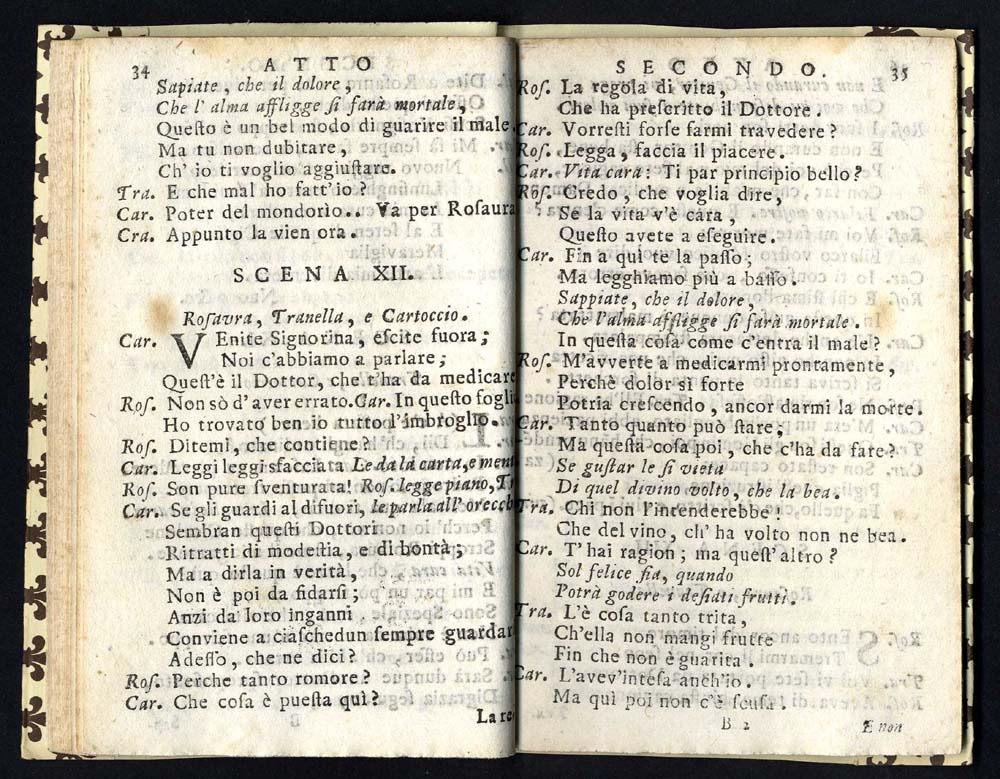 34 ATTO
Sapiate, che il dolore,
Che l' alma affligge si farà mortale,
Questo è un bel modo di guarire il male.
Ma tu non dubitare,
Ch' io ti voglio aggiustare.
Tra. E che mal ho fatt'io?
Car. Poter del mondorìo.. Va per Rosaura
Cra. Appunto la vien ora.
SCENA XII.
Rosaura, Tranella, e Cartoccio.
Car. VEnite Signorina, escite fuora;
Noi c'abbiamo a parlare;
Quest'è il Dottor, che t'ha da medicare
Ros. Non sò d'aver errato. Car. In questo fogli
Ho trovato ben io tutto l'imbroglio.
Ros. Ditemi, che contiene?
Car. Leggi leggi sfacciata Le da la carta, e ment
Ros. Son pure sventurata! Ros. legge piano, Tr
Car. Se gli guardi al difuori, le parla all' orecch
Sembran questi Dottori
Ritratti di modestia, e di bontà;
Ma a dirla in verità,
Non è poi da fidarsi;
Anzi da loro inganni
Conviene a ciaschedun sempre guardar
Adesso, che ne dici?
Ros. Perche tanto romore?
Car. Che cosa è puesta quì?
La re-
SECONDO. 35
Ros. La regola di vita,
Che ha prescritto il Dottore.
Car. Vorresti forse farmi travedere?
Ros. Legga, faccia il piacere.
Car. Vita cara: Ti par principio bello?
Ros. Credo, che voglia dire,
Se la vita v'è cara,
Questo avete a eseguire.
Car. Fin a quì te la passo;
Ma legghiamo più a basso.
Sappiate, che il dolore,
Che l'alma affligge si farà mortale.
In questa cosa come c'entra il male?
Ros. M'avverte a medicarmi prontamente,
Perchè dolor sì forte
Potria crescendo, ancor darmi la morte.
Car. Tanto quanto può stare;
Ma questa cosa poi, che c'ha da fare?
Se gustar le si vieta
Di quel divino volto, che la bea.
Tra. Chi non l'intenderebbe!
Che del vino, ch' ha volto non ne bea.
Car. T' hai ragion; ma quest'altro?
Sol felice fia, quando
Potrà godere i desiati frutti.
Tra. L'è cosa tanto trita,
Ch'ella non mangi frutte
Fin che non è guarita.
Car. L'avev'intesa anch'io.
Ma quì poi non c'è scusa.
B 2 E non